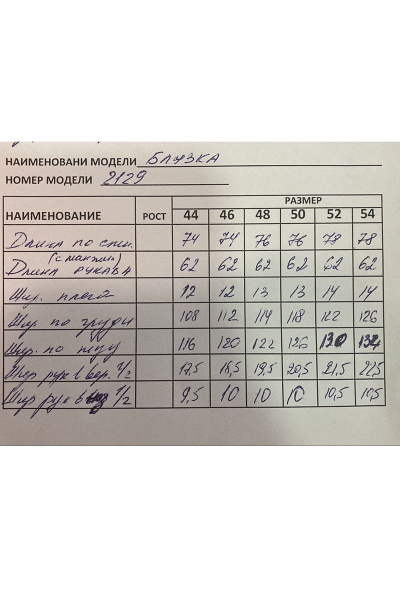 НАИМЕНОВАНИ МОДЕЛИ БЛУЗКА
НОМЕР МОДЕЛИ 2129
РАЗМЕР
НАИМЕНОВАНИЕ РОСТ 44 46 48 50 52 54
Длина по спин. 74 74 76 76 78 78
(с манжет)
Длина рукава 62 62 62 62 62 62
Шир. плеча 12 12 13 13 14 14
Шир по груди 108 112 114 118 122 126
Шир. по низу 116 120 122 126 130 134
Шир рук в вер. 1/2 17,5 18,5 19,5 20,5 21,5 22,5
Шир рук в низ 1/2 9,5 10 10 10 10,5 10,5